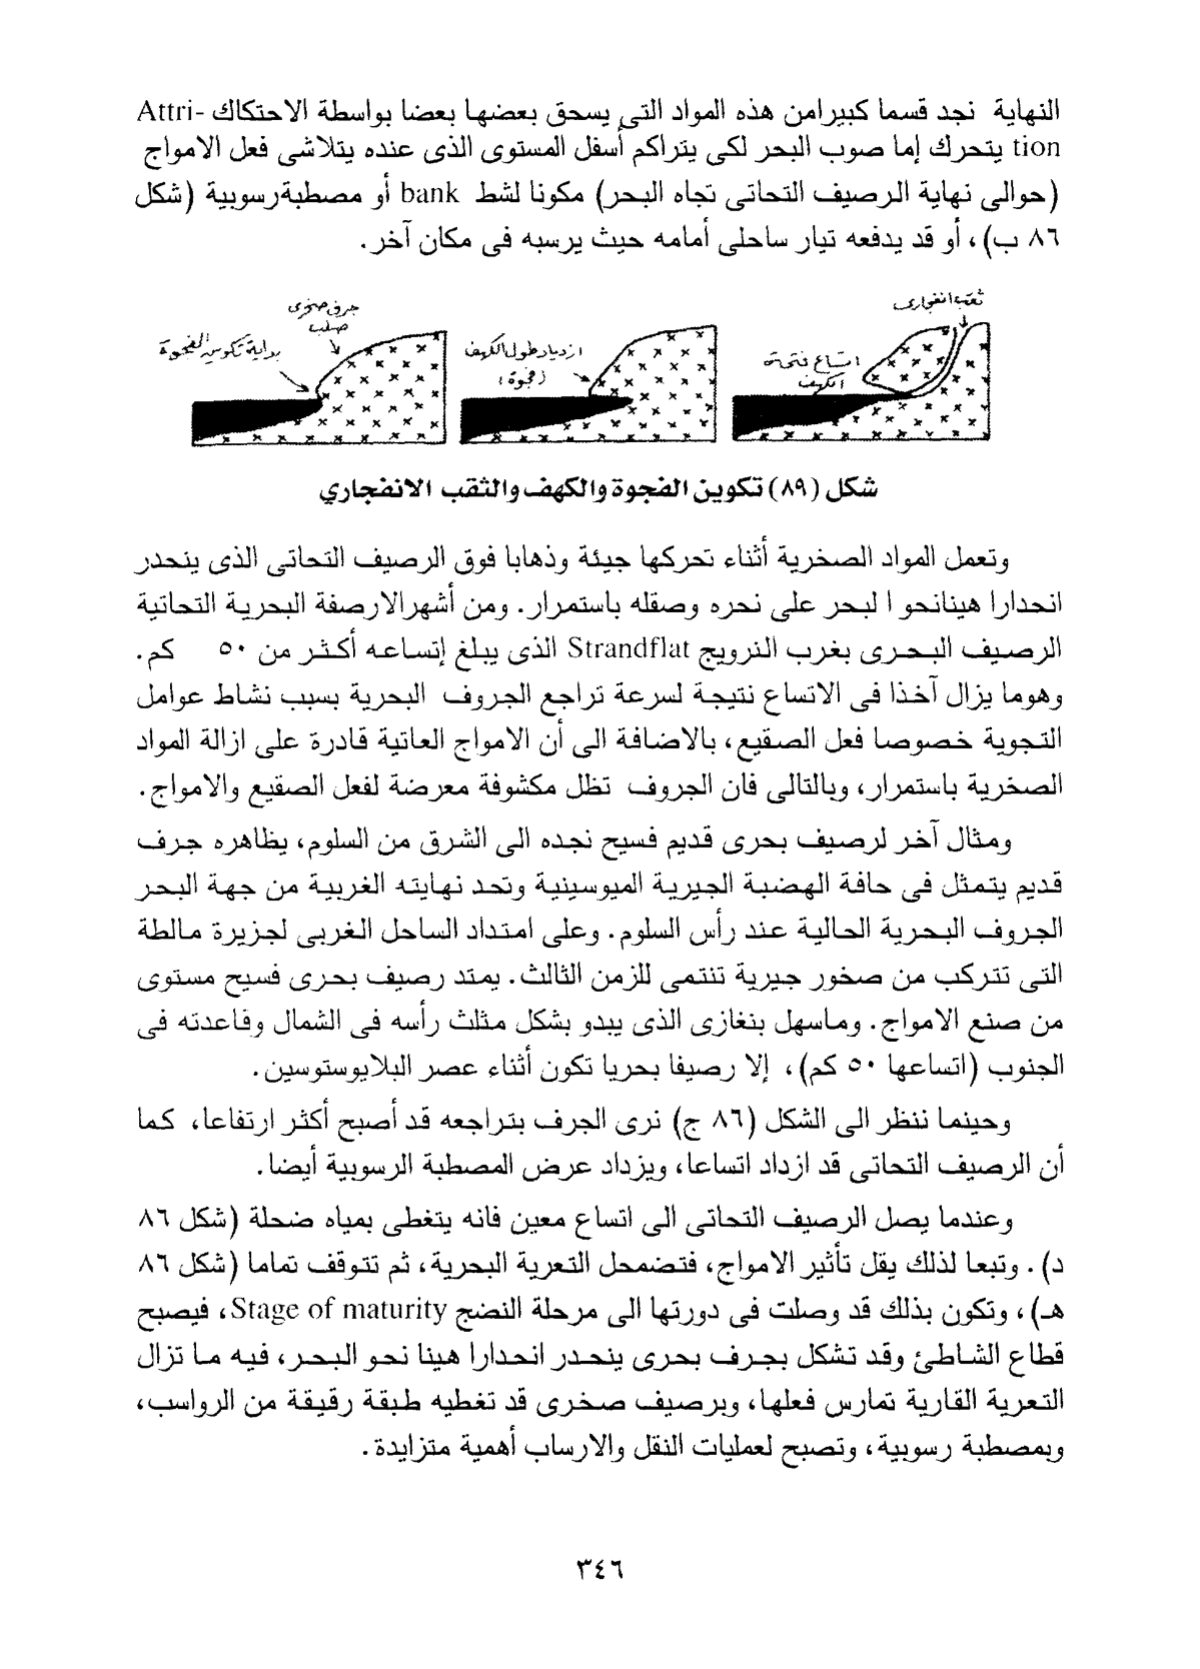 النهاية نجد قسما كبيرامن هذه المواد التى يسحق بعضها بعضا بواسطة الاحتكاك Attri-
tion يتحرك إما صوب البحر لكى يتراكم أسفل المستوى الذى عنده يتلاشى فعل الامواج
(حوالى نهاية الرصيف التحاتى تجاه البحر) مكونا لشط bank أو مصطبةرسوبية (شكل
٨٦ ب)، أو قد يدفعه تيار ساحلى أمامه حيث يرسبه فى مكان آخر.
ثقب انفجارى
اتساع فتحة
الكهف
ازدياد طول الكهف
(فجوة)
جرف صخرى
صلب
بداية تكوين الفجوة
شكل (٨٩) تكوين الفجوة والكهف والثقب الانفجاري
وتعمل المواد الصخرية أثناء تحركها جيئة وذهابا فوق الرصيف التحاتى الذى ينحدر
انحدارا هينانحو ا لبحر على نحره وصقله باستمرار. ومن أشهرالارصفة البحرية التحاتية
الرصيف البحرى بغرب النرويج Strandflat الذى يبلغ إتساعه أكثر من ٥٠ كم.
وهوما يزال آخذا فى الاتساع نتيجة لسرعة تراجع الجروف البحرية بسبب نشاط عوامل
التجوية خصوصا فعل الصقيع، بالاضافة الى أن الامواج العاتية قادرة على ازالة المواد
الصخرية باستمرار، وبالتالى فان الجروف تظل مكشوفة معرضة لفعل الصقيع والامواج.
ومثال آخر لرصيف بحرى قديم فسيح نجده الى الشرق من السلوم، يظاهره جرف
قديم يتمثل فى حافة الهضبة الجيرية الميوسينية وتحد نهايته الغربية من جهة البحر
الجروف البحرية الحالية عند رأس السلوم. وعلى امتداد الساحل الغربى لجزيرة مالطة
التى تتركب من صخور جيرية تنتمى للزمن الثالث. يمتد رصيف بحرى فسيح مستوى
من صنع الامواج. وماسهل بنغازى الذى يبدو بشكل مثلث رأسه فى الشمال وقاعدته فى
الجنوب (اتساعها ٥٠ كم)، إلا رصيفا بحريا تكون أثناء عصر البلايوستوسين.
وحينما ننظر الى الشكل (٨٦ ج) نرى الجرف بتراجعه قد أصبح أكثر ارتفاعا، كما
أن الرصيف التحاتى قد ازداد اتساعا، ويزداد عرض المصطبة الرسوبية أيضا.
وعندما يصل الرصيف التحاتى الى اتساع معين فانه يتغطى بمياه ضحلة (شكل ٨٦
د). وتبعا لذلك يقل تأثير الامواج، فتضمحل التعرية البحرية، ثم تتوقف تماما (شكل ٨٦
هـ)، وتكون بذلك قد وصلت فى دورتها الى مرحلة النضج Stage of maturity، فيصبح
قطاع الشاطئ وقد تشكل بجرف بحرى ينحدر انحدارا هينا نحو البحر، فيه ما تزال
التعرية القارية تمارس فعلها، وبرصيف صخرى قد تغطيه طبقة رقيقة من الرواسب،
وبمصطبة رسوبية، وتصبح لعمليات النقل والارساب أهمية متزايدة.
٣٤٦